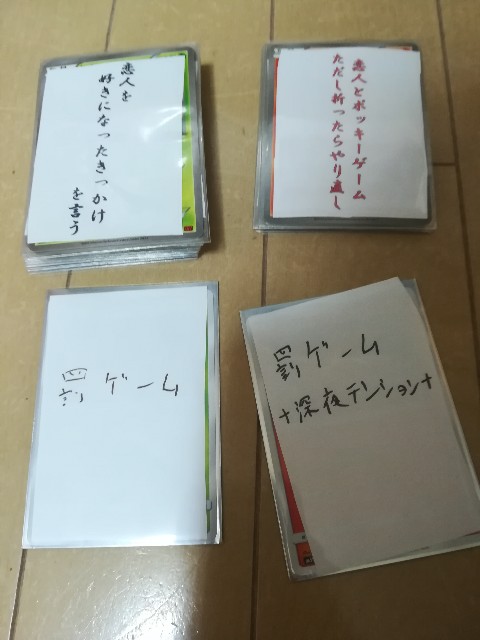 恋人を
好きになったきっかけ
を言う
恋人とポッキーゲーム
ただし折ったらやり直し
罰ゲーム
罰ゲーム
+深夜テンション+